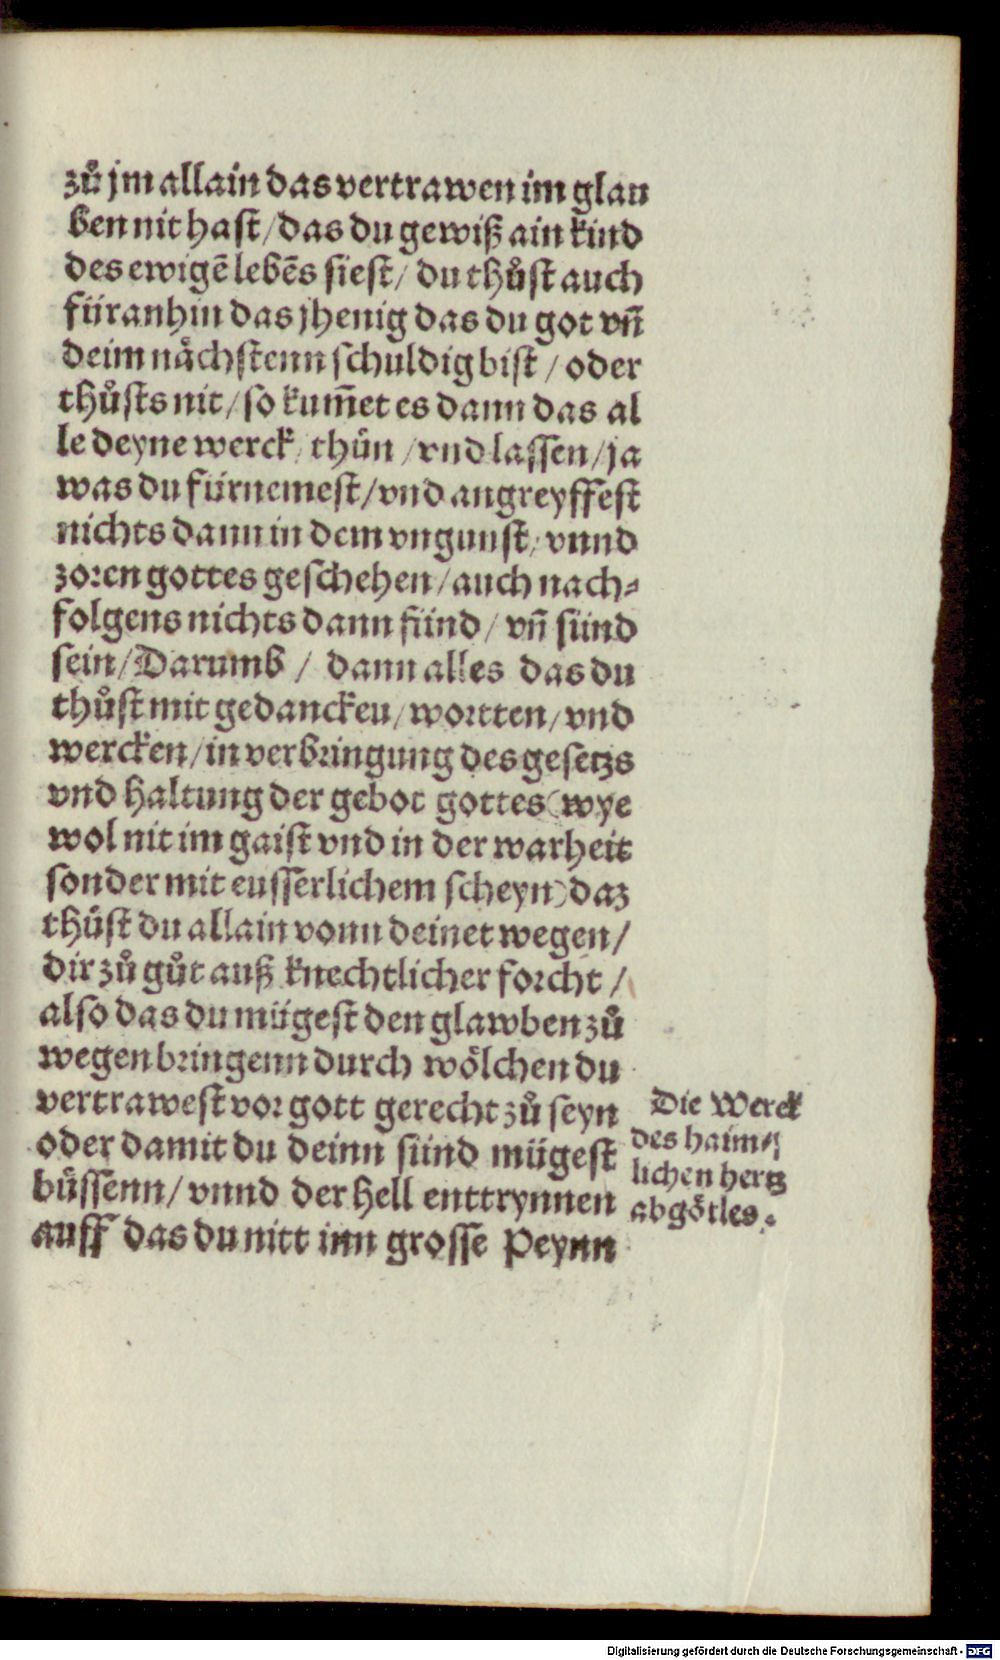 zů jm allain das vertrawen im glau
ben nit hast/das du gewiß ain kind
des ewigē lebēs siest/ du thůst auch
füranhin das jhenig das du got vñ
deim nächstenn schuldig bist / oder
thůsts nit/so kum̃et es dann das al
le deyne werck/ thůn /vnd lassen/ja
was du fürnemest/vnd angreyffest
nichts dann in dem vngunst/ vnnd
zoren gottes geschehen/auch nach⸗
folgens nichts dann sünd/ vñ sünd
sein/Darumb / dann alles das du
thůst mit gedancken/wortten/vnd
wercken/in verbringung des gesetzs
vnd haltung der gebot gottes(wye
wol nit im gaist vnd in der warheit
sonder mit eusserlichem scheyn)daz
thůst du allain vonn deinet wegen/
dir zů gůt auß knechtlicher forcht /
also das du mügest den glawben zů
wegen bringenn durch wölchen du
vertrawest vor gott gerecht zů seyn
oder damit du deinn sünd mügest
büssenn/vnnd der hell enttrynnen
auff das du nitt inn grosse Peynn
Die Werck
des haim⸗
lichen hertz
abgötles.
Digitalisierung gefördert durch die Deutsche Forschungsgemeinschaft - DFG